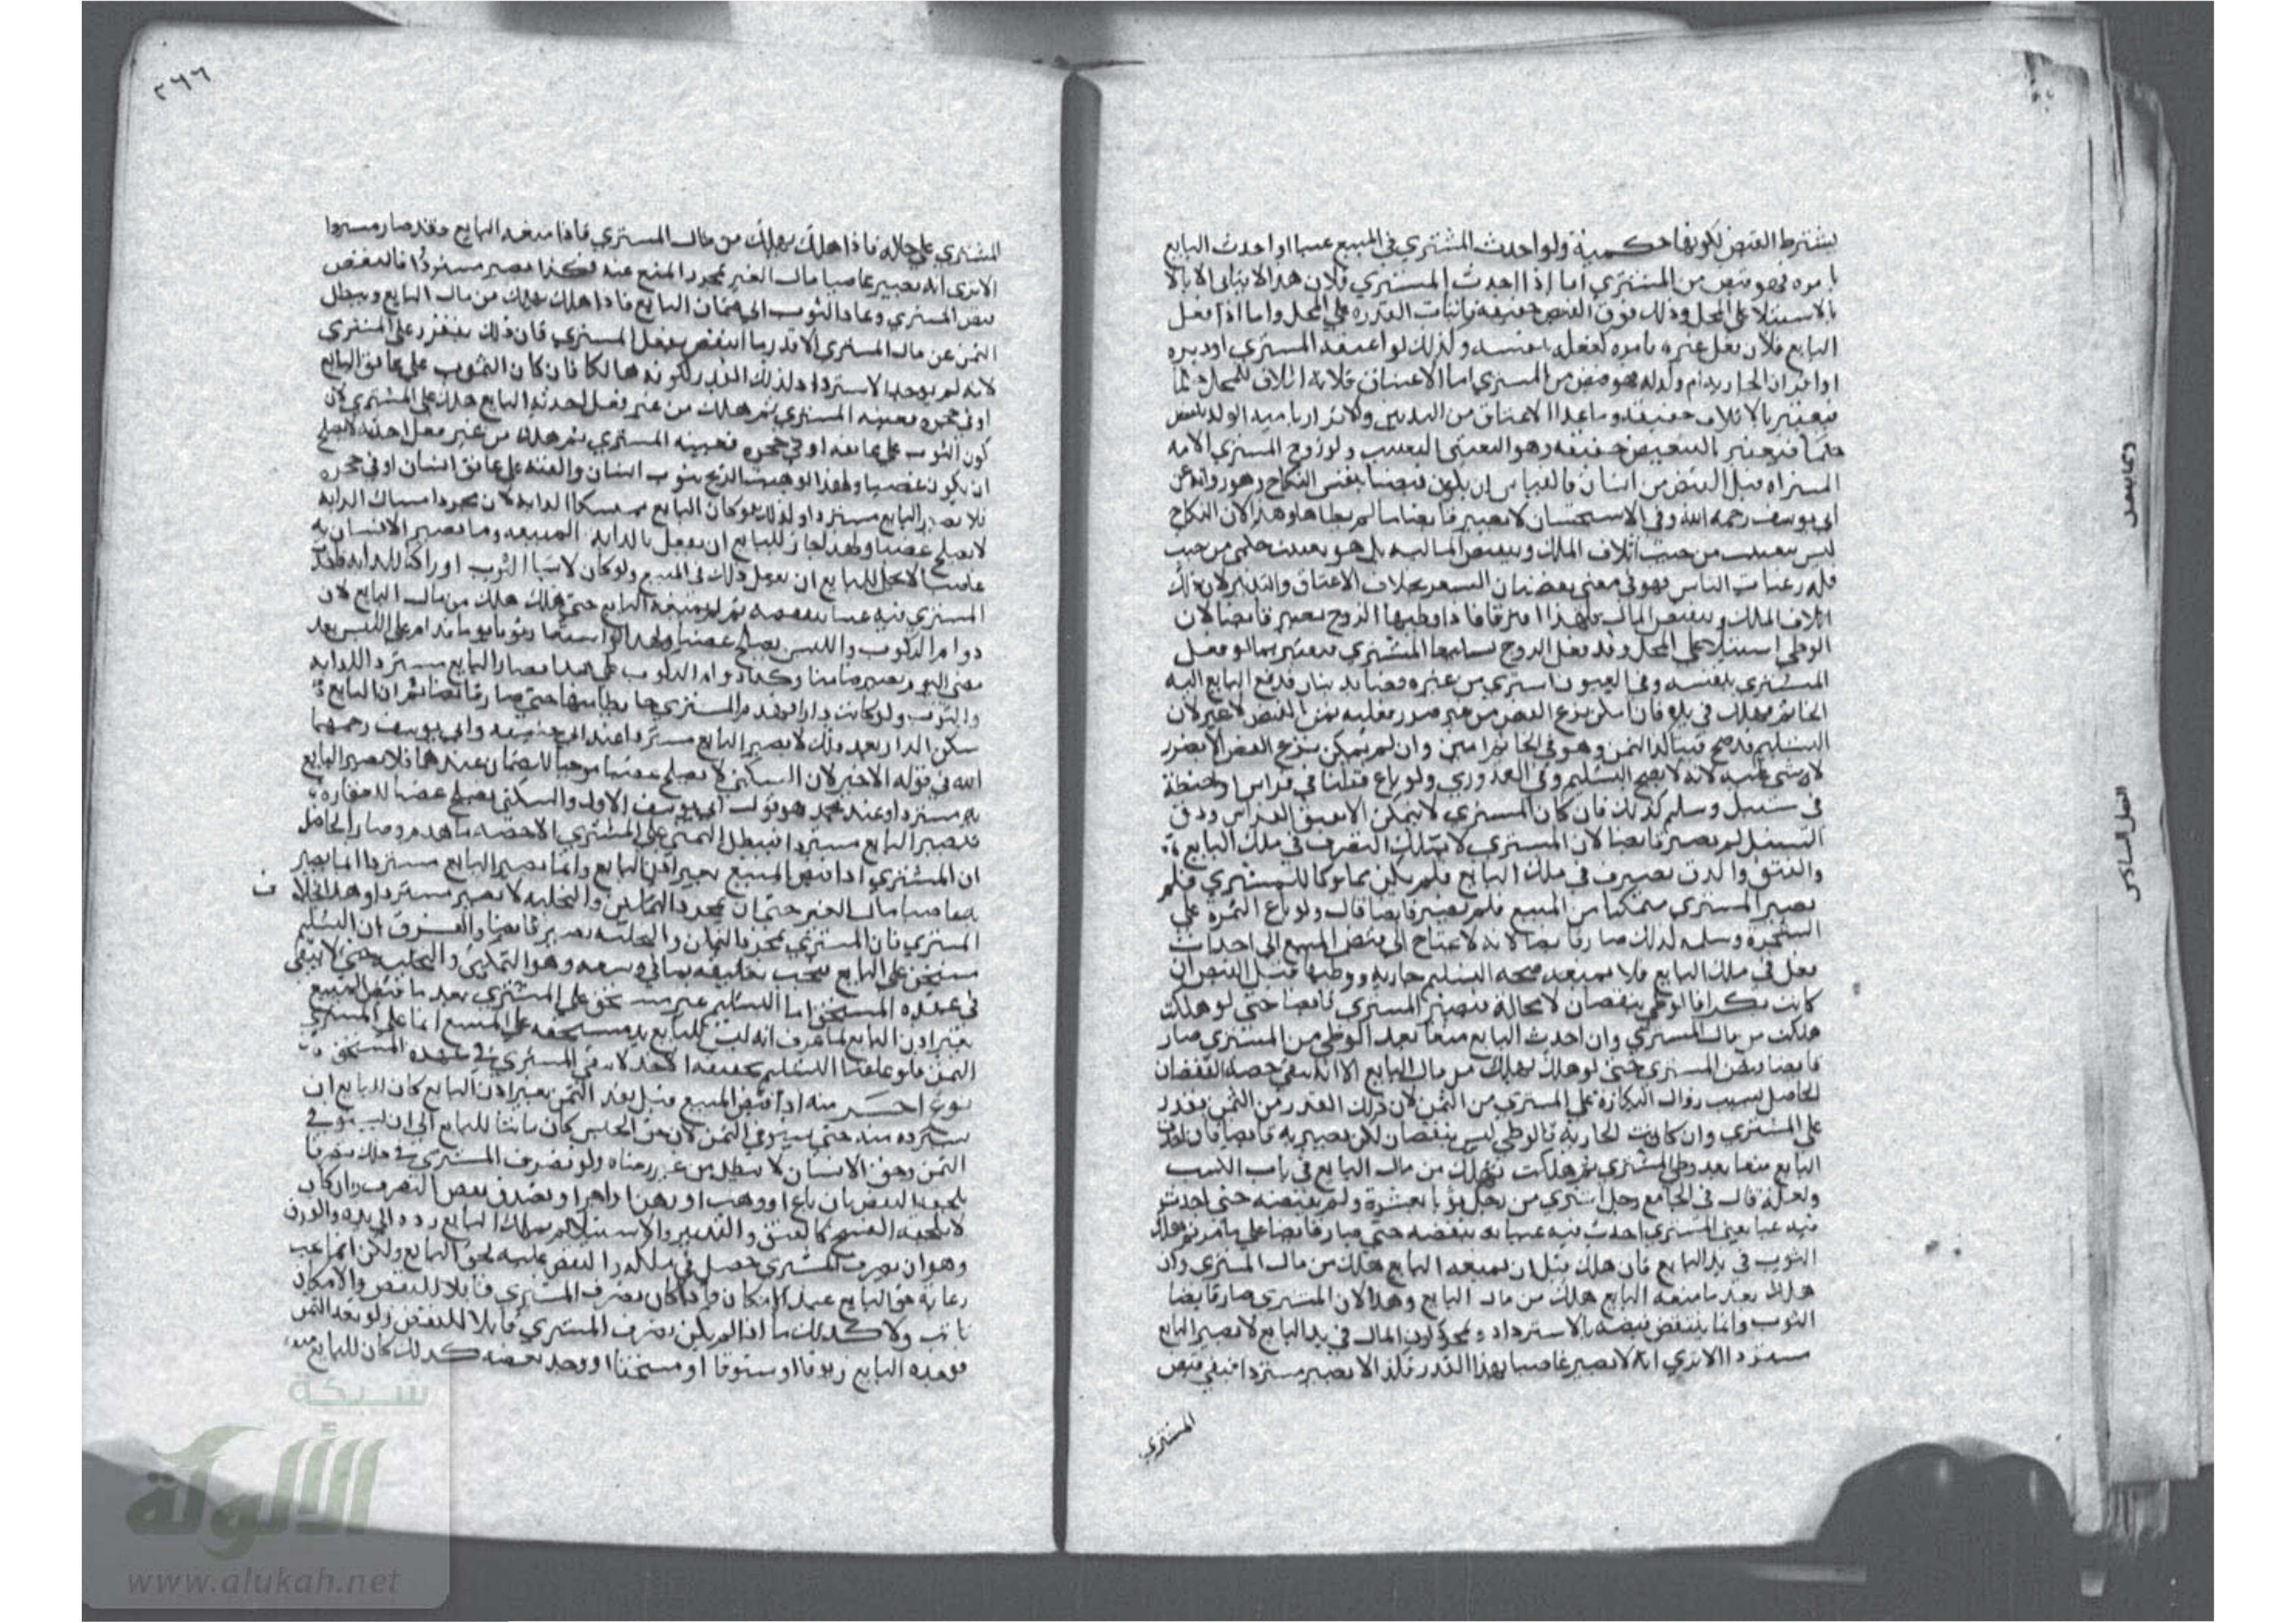 يشترط القبض لكونها حكمية ولو احدث المشتري في المبيع عيبا او احدث البايع
بامره فهو قبض من المشتري اما اذا احدث المشتري فلان هذا لا يتاتى الا
بالاستيلا على المحل وذلك فوق القبض حقيقة باثبات القدرة على المحل واما اذا فعل
البايع فلان فعل غيره بامره كفعله بنفسه وكذلك لو اعتقه المشتري او دبره
او اقر ان الجارية ام ولد له فهو قبض من المشتري اما الاعتاق فلانه اتلاف للمحل
فيعتبر بالاتلاف حقيقة وما عدا الاعتاق من التدبير والاقرار بامية الولد
حكما فيعتبر التنقيص حقيقة وهو التعيب ولو زوج المشتري الامة
المشتراة قبل القبض من انسان فالقياس ان يكون قبضا بنفس النكاح وهو رواية عن
ابي يوسف رحمه الله وفي الاستحسان لا يصير قابضا ما لم يطاها وهذا لان النكاح
ليس بتعييب من حيث اتلاف الملك وتنقيص المالية بل هو تعييب حكمي من حيث
قلة رغبات الناس فهو في معنى نقصان السعر بخلاف الاعتاق والتدبير لان ذلك
اتلاف الملك وتنقيص المال فلهذا افترقا فاذا وطيها الزوج يصير قابضا لان
الوطي استيلا على المحل وقد فعل الزوج المشتري فيعتبر بما لو فعل
المشتري بنفسه وفي العيون اشترى من غيره فصا بدينار فدفع البايع اليه
الخاتم فهلك في يده فان امكن نزع الفص من غير ضرر فعليه ثمن الفص لا غير لان
التسليم قد صح فيتاكد الثمن وهو في الخاتم امين وان لم يمكن نزع الفص الا بضرر
لا شي عليه لانه لا يصح التسليم وفي القدوري ولو باع قطنا في فراش او حنطة
في سنبل وسلم كذلك فان كان المشتري لا يتمكن الا بفتق الفراش ودق
السنبل لم يصر قابضا لان المشتري لا يملك التصرف في ملك البايع
والفتق والدق تصرف في ملك البايع فلم يكن مملوكا للمشتري فلم
يصير المشتري متمكنا من المبيع فلم يصير قابضا قال ولو باع الثمرة على
الشجرة وسلمه كذلك صار قابضا لانه لا يحتاج الى قبض المبيع الى احداث
فعل في ملك البايع فلا يمنعه صحة التسليم جارية ووطيها قبل القبض ان
كانت بكرا فالوطي ينقصان لا محالة فيصير المشتري قابضا حتى لو هلكت
هلكت من مال المشتري وان احدث البايع منعا بعد الوطي من المشتري صار
قبض المشتري حتى لو هلك يهلك من مال البايع الا انه يبقى حصة النقصان
الحاصل بسبب زوال البكارة على المشتري من الثمن لان ذلك القدر من الثمن تقرر
على المشتري وان كانت الجارية فالوطي ليس بنقصان لكن يصير به قابضا فان احدث
البايع منعا بعد وطي المشتري ثم هلكت تهلك من مال البايع في باب الكسب
والغلة قال في الجامع رجل اشترى من رجل ثوبا بعشرة ولم يقبضه حتى احدث
فيه عيبا يعني المشتري احدث فيه عيبا به ينقصه حتى صار قابضا على ما مر ثم هلك
الثوب في يد البايع فان هلك قبل ان يمنعه البايع هلك من مال المشتري وان
هلك بعد ما منعه البايع هلك من مال البايع وهذا لان المشتري صار قابضا
الثوب وانما ينتقض قبضه بالاسترداد وبمجرد كون المال في يد البايع لا يصير البايع
مستردا الا ترى انه لا يصير غاصبا بهذا القدر فكذا لا يصير مستردا فبقي قبض
المشتري
٢٦٦
المشتري على حاله فاذا هلك يهلك من مال المشتري فاذا منعه البايع فقد صار مستردا
الا ترى انه يصير غاصبا مال الغير بمجرد المنع عنه فكذا يصير مستردا فانتقض
قبض المشتري وعاد الثوب الى ضمان البايع فاذا هلك يهلك من مال البايع ويبطل
الثمن عن مال المشتري الا قدر ما انتقض بفعل المشتري فان ذلك يتقرر على المشتري
لانه لم يوجد الاسترداد لذلك القدر لكونه هالكا فان كان الثوب على عاتق البايع
او في حجره فعيبه المشتري ثم هلك من غير فعل احدثه البايع هلك على المشتري لان
كون الثوب على عاتقه او في حجره فعيبه المشتري ثم هلك من غير فعل احدثه لا يصلح
ان يكون غصبا ولهذا لو هبت الريح بثوب انسان والقته على عاتق انسان او في حجره
فلا يصير البايع مستردا وكذلك لو كان البايع ممسكا الدابة لان مجرد امساك الدابة
لا يصلح غصبا ولهذا جاز للبايع ان يفعل بالدابة المبيعة وما يصير الانسان به
غاصبا لا يحل للبايع ان يفعل ذلك في المبيع ولو كان لابسا الثوب او راكبا للدابة
المشتري فيه عيبا ينقصه ثم لم يمنعه البايع حتى هلك هلك من مال البايع لان
دوام الركوب واللبس يصلح غصبا ولهذا لو استعار ثوبا يوما فدام على اللبس بعد
مضي اليوم يصير ضامنا وكذا دوام الركوب على هذا فصار البايع مستردا للدابة
والثوب ولو كانت دارا فهدم المشتري حائطا منها حتى صار قابضا ثم ان البايع
سكن الدار بعد ذلك لا يصير البايع مستردا عند ابي حنيفة وابي يوسف رحمهما
الله في قوله الاخير لان السكنى لا يصلح غصبا موجبا للضمان عندهما فلا يصير البايع
به مستردا وعند محمد وهو قول ابي يوسف الاول والسكنى يصلح غصبا للعقار
فيصير البايع مستردا فيبطل الثمن على المشتري الا حصة ما هدم وصار الحاصل
ان المشتري اذا قبض المبيع بغير اذن البايع وانما يصير البايع مستردا بما يصير
به غاصبا مال الغير حتى ان بمجرد التمكين والتخلية لا يصير مستردا وهذا بخلاف
المشتري فان المشتري بمجرد التمكن والتخلية يصير قابضا والفرق ان التسليم
مستحق على البايع فيجب تعليقه بما في وسعه وهو التمكين والتخلية حتى لا يبقى
في عهدة المستحق اما التسليم غير مستحق على المشتري بعد ما قبض المبيع
بغير اذن البايع لما عرف انه ليس للبايع يد مستحقة على المبيع انما على المشتري
الثمن فلو علقنا التسليم بحقيقة الاخذ لا يبقى المشتري في عهدة المستحق
نوع اخر منه اذا قبض المبيع قبل نقد الثمن بغير اذن البايع كان للبايع ان
يسترده منه حتى يستوفي الثمن لان حق الحبس كان ثابتا للبايع الى ان يستوفي
الثمن وحق الانسان لا يبطل من غير رضاه ولو تصرف المشتري في ذلك تصرفا
يلحقه النقض بان باع او وهب او رهن او اجر او تصدق نقض التصرف وان كان
لا يلحقه الفسخ كالعتق والتدبير والاستيلاد لم يملك البايع رده الى يده والفرق
وهو ان تصرف المشتري حصل في ملكه والنقض عليه لحق البايع ولكن انما يجب
رعاية حق البايع عند الامكان واذا كان تصرف المشتري قابلا للنقض والامكان
ثابت ولا كذلك ما اذا لم يكن تصرف المشتري قابلا للنقض ولو نقد الثمن
فوجده البايع زيوفا او ستوقا او مستحقا او وجد بعضه كذلك كان للبايع
شبكة
الألوكة
www.alukah.net